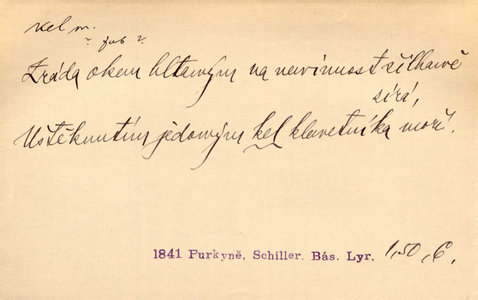 kel m.
? fab ?
Zráda okem hltawým na newinnost šilhawě
zírá,
Uštěknutím jedowým kel klewetníka moří.
1841 Purkyně, Schiller. Bás. Lyr. 1,50, C.